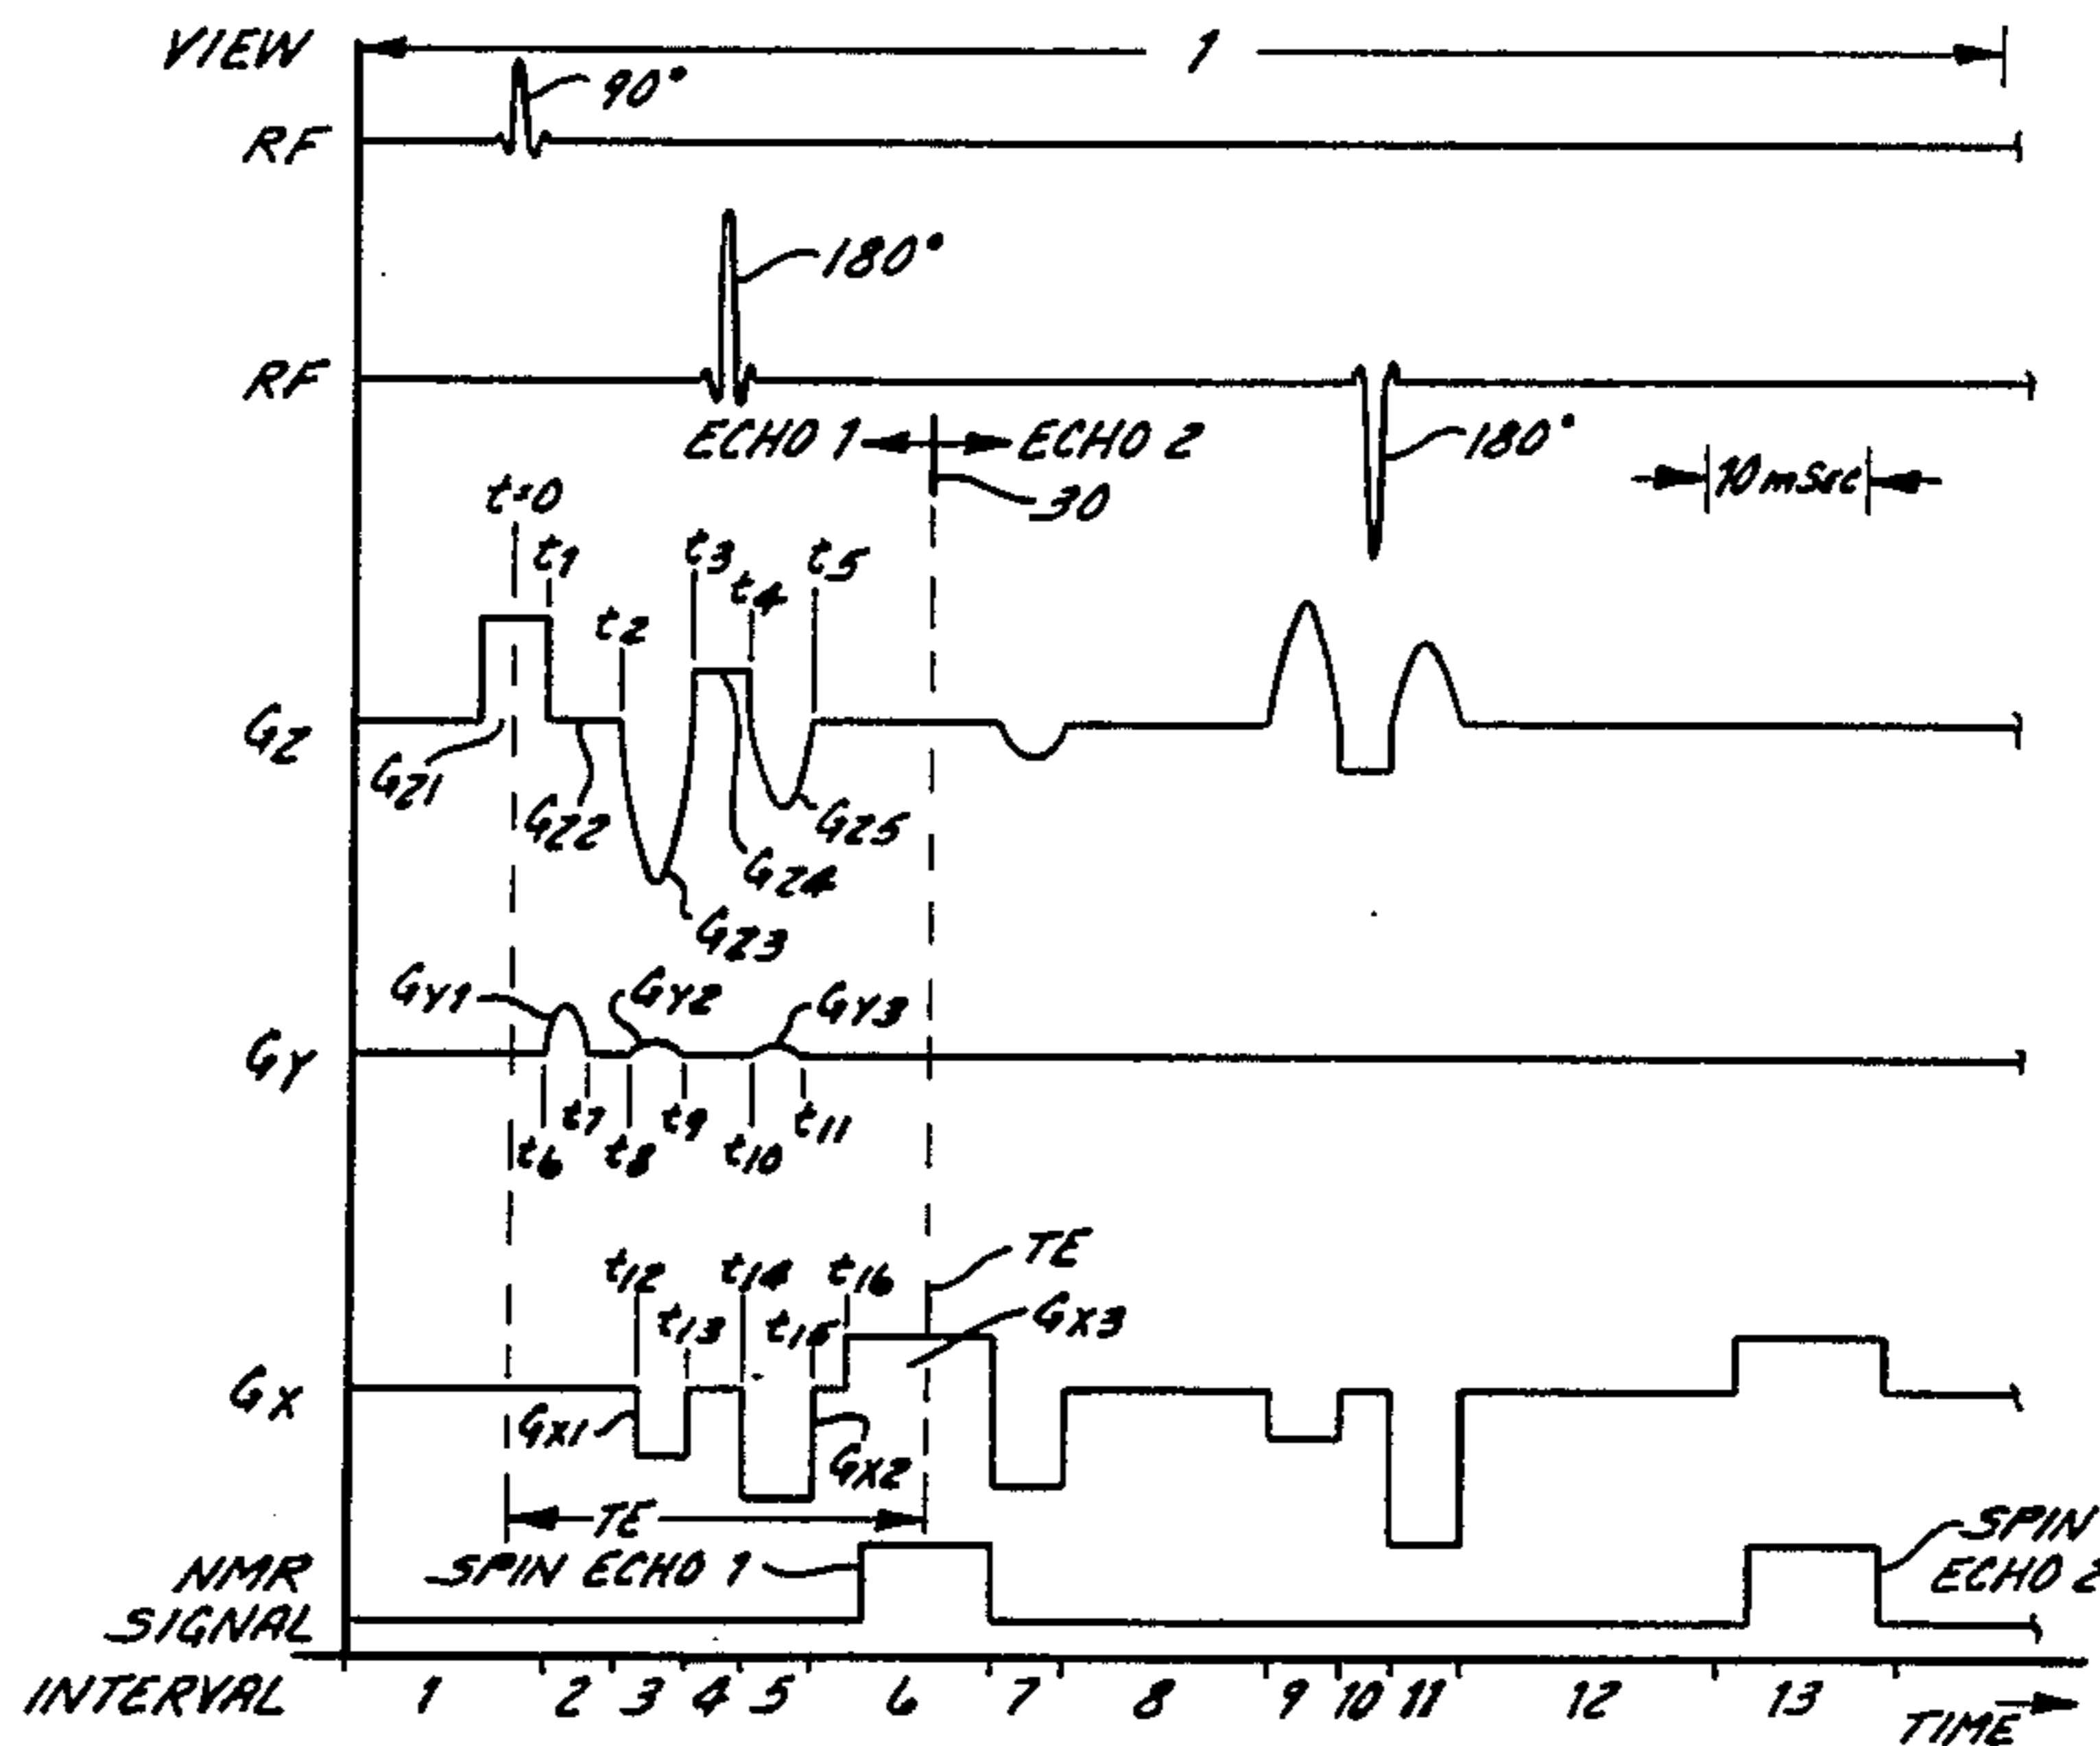 VIEW 1
90°
RF
180°
RF
ECHO 1 ECHO 2
180°
10 mSEC
30
t=0
t1 t2 t3 t4 t5
GZ
GZ1 GZ2 GZ3 GZ4 GZ5
GY1 GY2 GY3
GY
t6 t7 t8 t9 t10 t11
TE
t12 t13 t14 t15 t16
GX3
GX
GX1 GX2
TE
SPIN ECHO 1
SPIN ECHO 2
NMR SIGNAL
INTERVAL 1 2 3 4 5 6 7 8 9 10 11 12 13
TIME